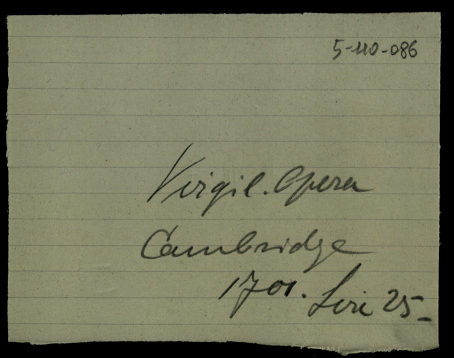 5-110-086
Virgil. Opera
Cambridge
1701. Lire 25-